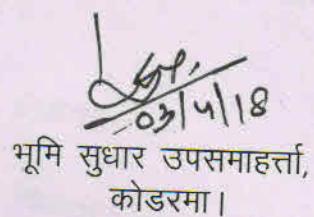 03/4/18
भूमि सुधार उपसमाहर्त्ता,
कोडरमा।